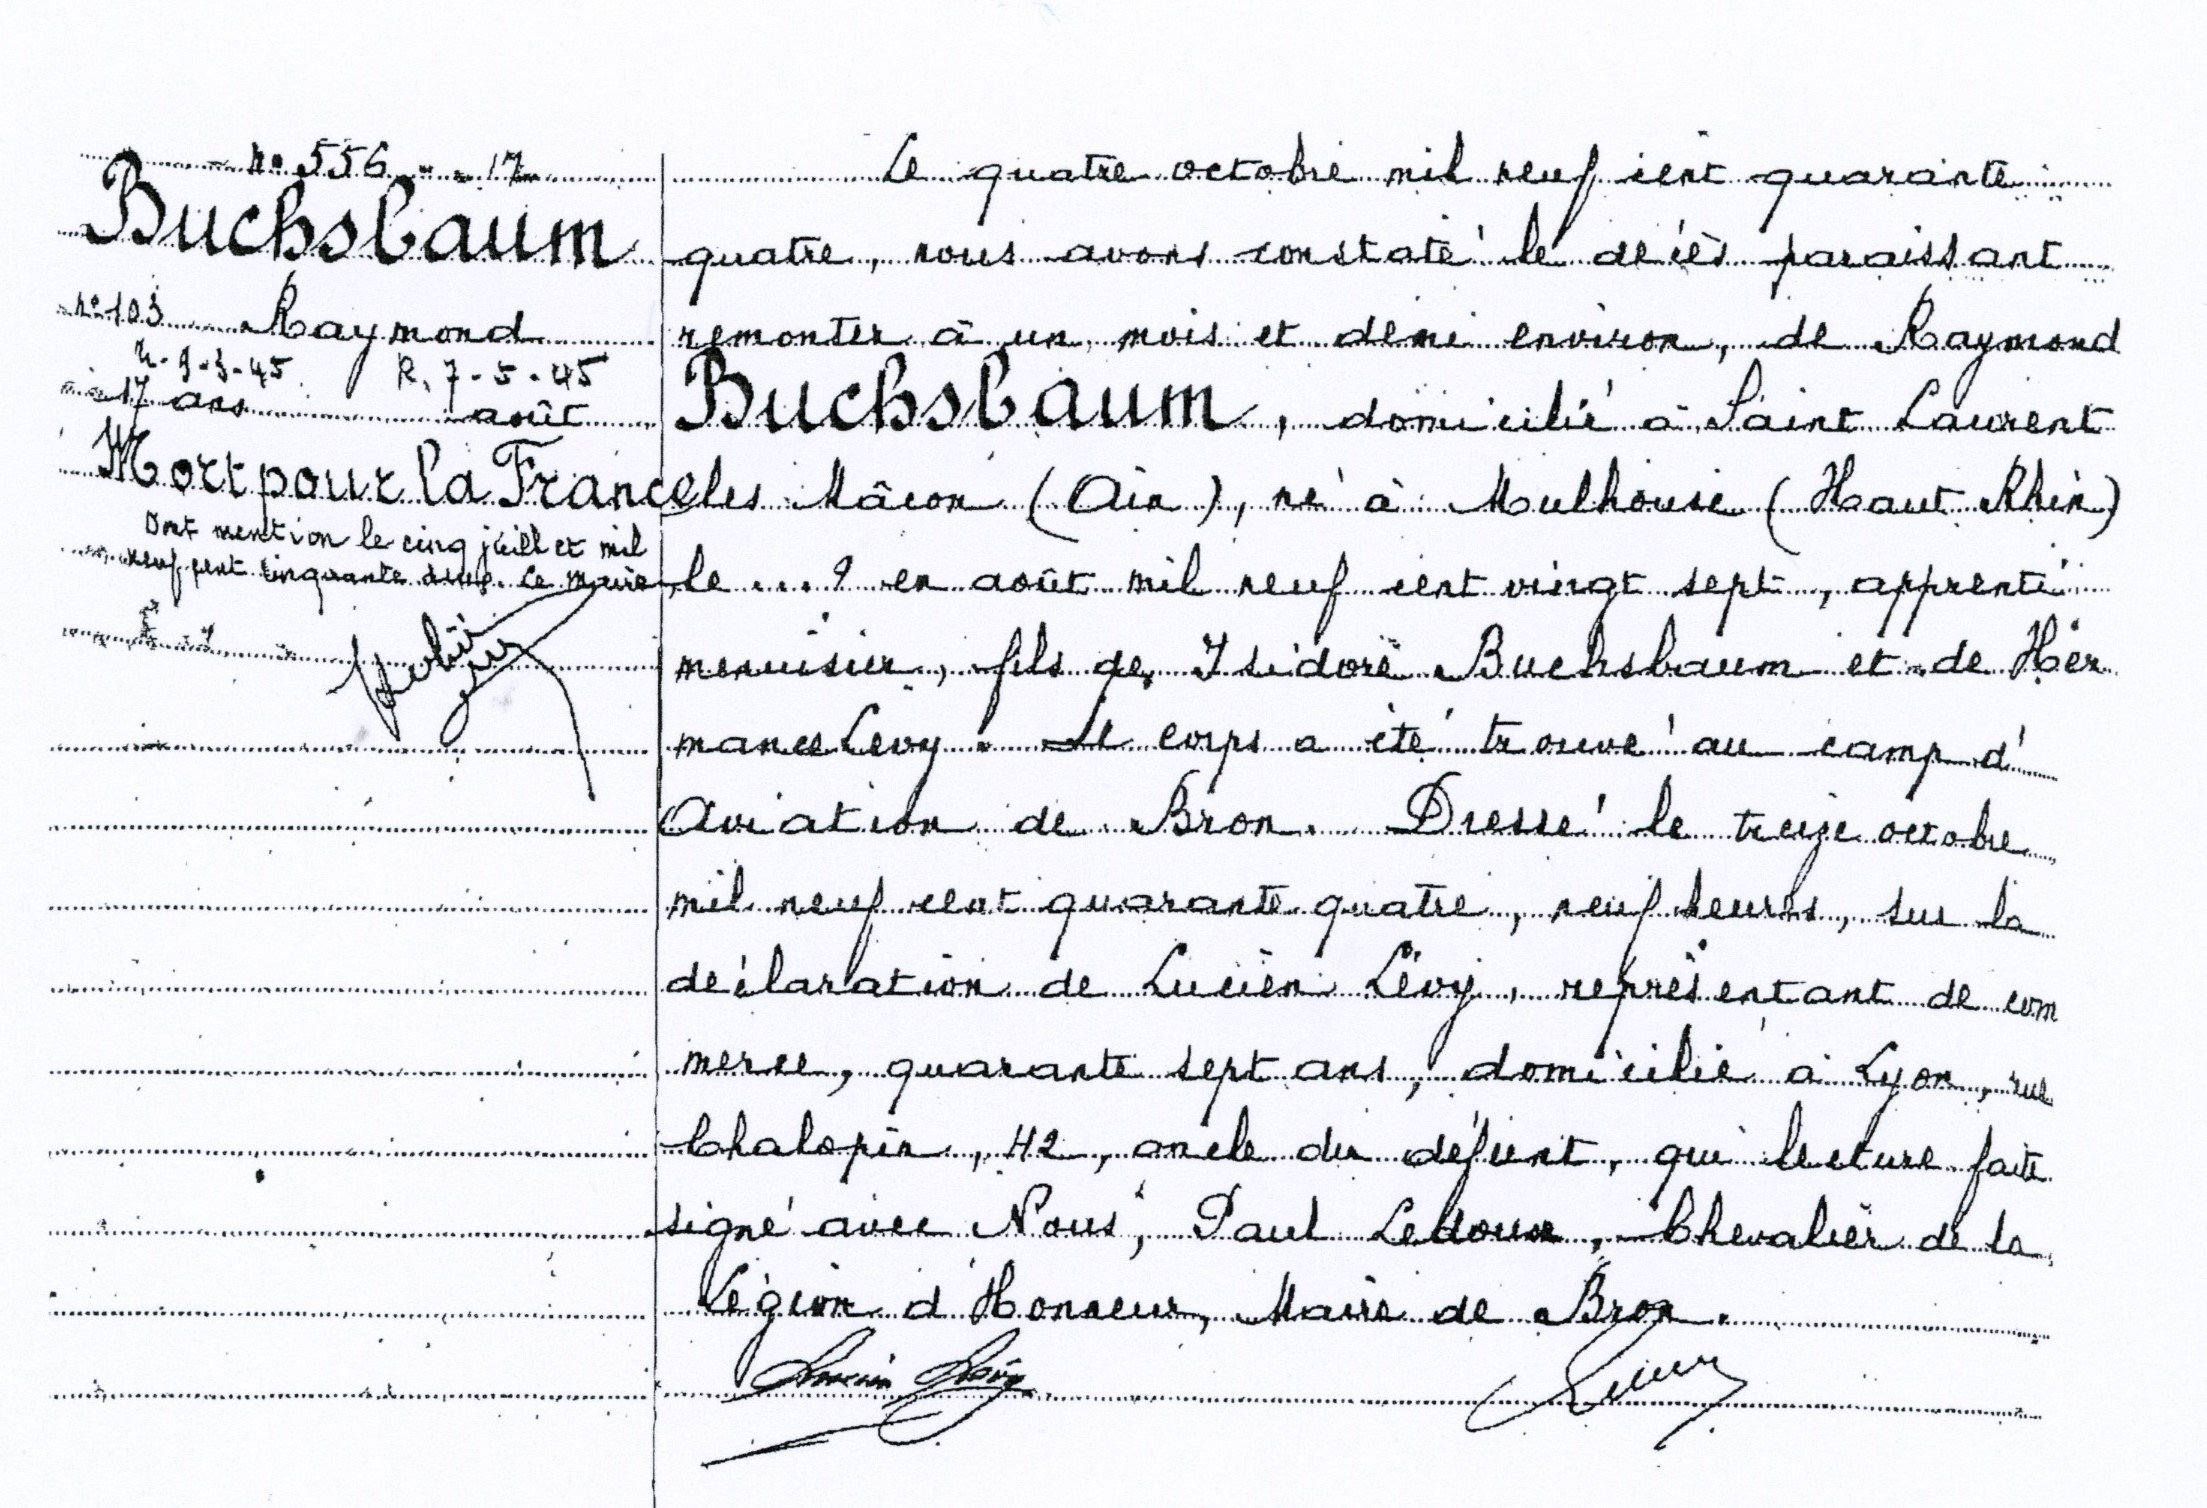 n° 556 - - 17
Buchsbaum
n° 103 Raymond
n. 9-3-45 R. 7-5-45
17 ans août
Mort pour la France
Dont mention le cinq juillet mil
neuf cent cinquante deux. Le Maire
Le quatre octobre mil neuf cent quarante
quatre, nous avons constaté le décès paraissant
remonter à un mois et demi environ, de Raymond
Buchsbaum, domicilié à Saint Laurent
les Mâcon (Ain), né à Mulhouse (Haut Rhin)
le ... ? en août mil neuf cent vingt sept, apprenti
menuisier, fils de Isidore Buchsbaum et de Her
mance Levy. Le corps a été trouvé au camp d'
Aviation de Bron. Dressé le treize octobre
mil neuf cent quarante quatre, neuf heures, sur la
déclaration de Lucien Lévy, représentant de com
merce, quarante sept ans, domicilié à Lyon, rue
Chalopin, 42, oncle du défunt, qui lecture faite
signé avec Nous, Paul Ledoux, Chevalier de la
Légion d'Honneur, Maire de Bron.
Lucien Lévy